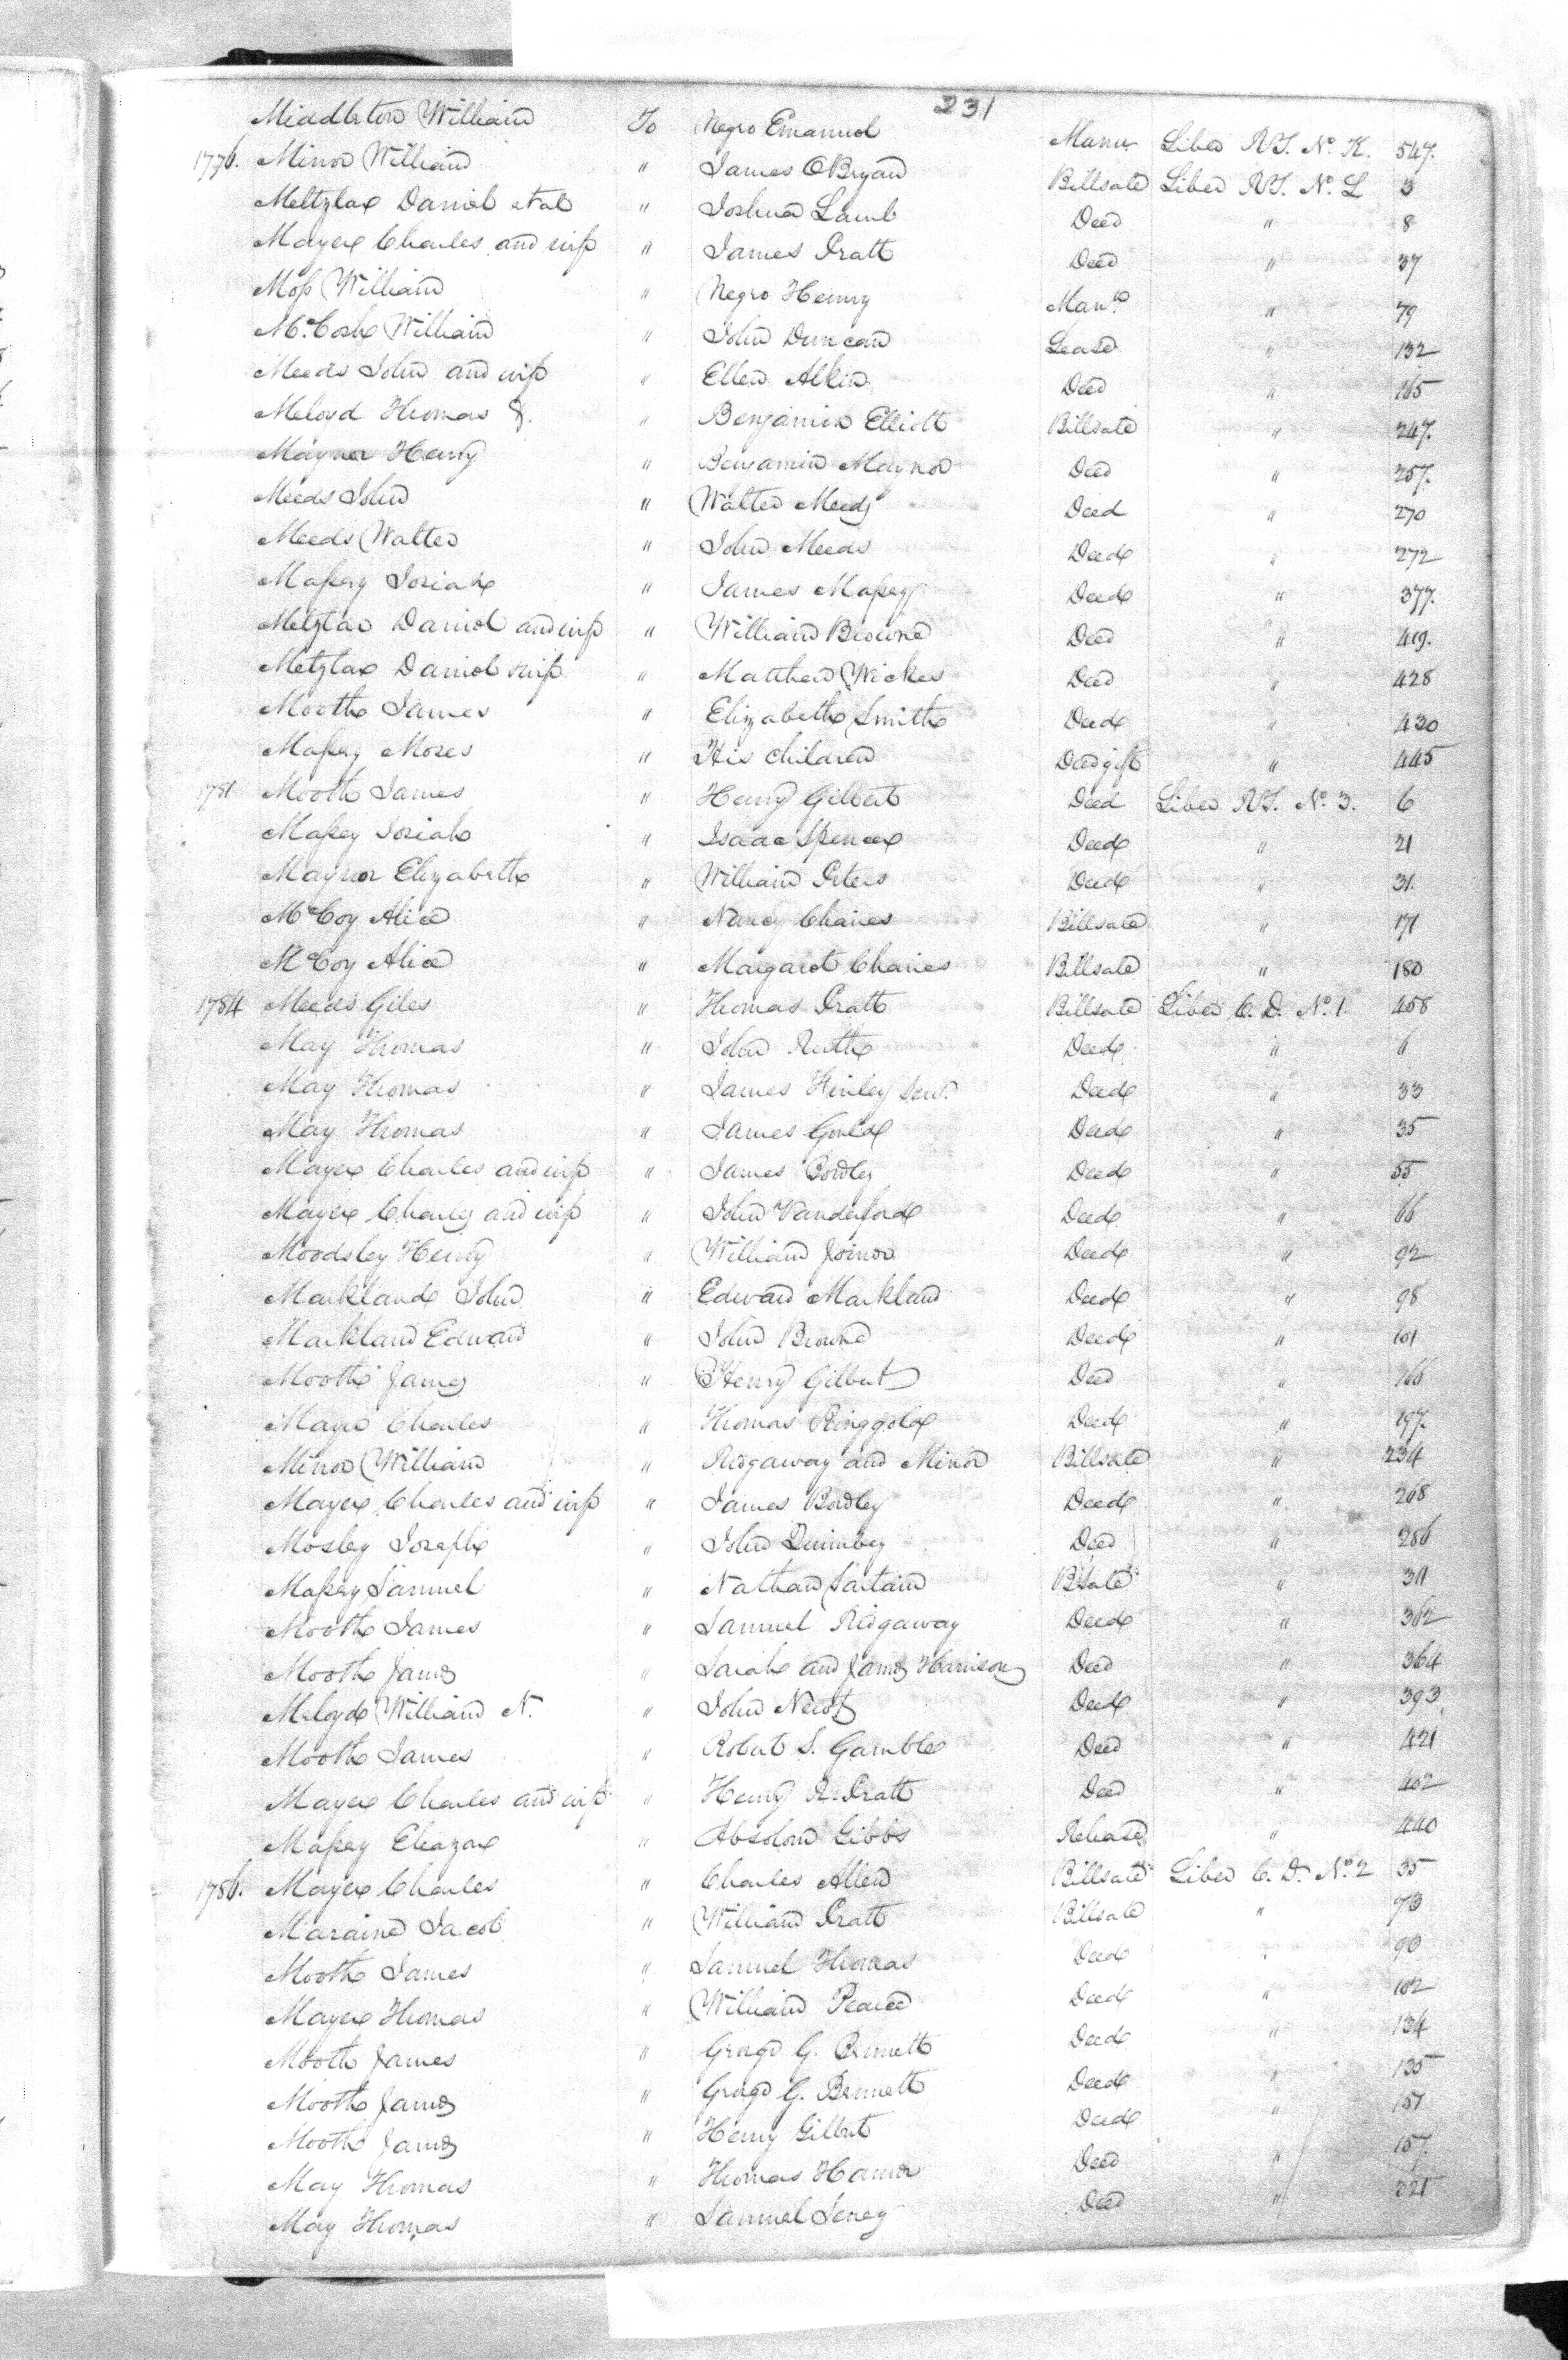 231
Middleton William To Negro Emanuel Manu Liber RT. No. K. 547.
1776. Minor William " James OBryan Billsale Liber RT. No. L 3
Meltzlar Daniel et al " Joshua Lamb Deed " 8
Mayer Charles and wife " James Pratt Deed " 37
Moss William " Negro Henry Mann. " 79
McCosh William " John Duncan Lease " 132
Meeds John and wife " Ellen Alkin Deed " 165
Meloyd Thomas " Benjamin Elliott Billsale " 247.
Maynor Henry " Benjamin Maynor Deed " 257.
Meeds John " Walter Meeds Deed " 270
Meeds Walter " John Meeds Deed " 272
Massey Josiah " James Massey Deed " 377.
Metzlar Daniel and wife " William Browne Deed " 419.
Metzlar Daniel & wife " Matthew Wickes Deed " 428
Mooth James " Elizabeth Smith Deed " 430
Massey Moses " His children Deed gift " 445
1781 Mooth James " Henry Gilbert Deed Liber RT. No. 3. 6
Massey Josiah " Isaac Spencer Deed " 21
Maynor Elizabeth " William Peters Deed " 31.
McCoy Alice " Nancy Chaires Billsale " 171
McCoy Alice " Margaret Chaires Billsale " 180
1784 Meeds Giles " Thomas Pratt Billsale Liber C. D. No. 1. 458
May Thomas " John Ruth Deed " 6
May Thomas " James Hinley Senr. Deed " 33
May Thomas " James Gould Deed " 35
Mayer Charles and wife " James Bordley Deed " 55
Mayer Charles and wife " John Vanderford Deed " 66
Moodsley Henry " William Joiner Deed " 92
Markland John " Edward Markland Deed " 98
Markland Edward " John Browne Deed " 101
Mooth James " Henry Gilbert Deed " 166
Mayer Charles " Thomas Ringgold Deed " 197.
Minor William " Ridgaway and Minor Billsale " 234
Mayer Charles and wife " James Bordley Deed " 268
Mosley Joseph " John Quimbey Deed " 286
Massey Samuel " Nathan Sartain BSale " 311
Mooth James " Samuel Ridgaway Deed " 362
Mooth James " Sarah and James Harrison Deed " 364
Meloyd William N. " John Deed " 393
Mooth James " Robert S. Gamble Deed " 421
Mayer Charles and wife " Henry R. Pratt Deed " 402
Massey Eleazar " Absolom Gibbs Release " 440
1786. Mayer Charles " Charles Allen Billsale Liber C. D. No. 2 35
Maraine Jacob " William Pratt Billsale " 73
Mooth James " Samuel Thomas Deed " 90
Mayer Thomas " William Pearce Deed " 102
Mooth James " George G. Bennett Deed " 134
Mooth James " George G. Bennett Deed " 135
Mooth James " Henry Gilbert Deed " 151
May Thomas " Thomas Hamer Deed " 157.
May Thomas " Samuel Seney Deed " 321